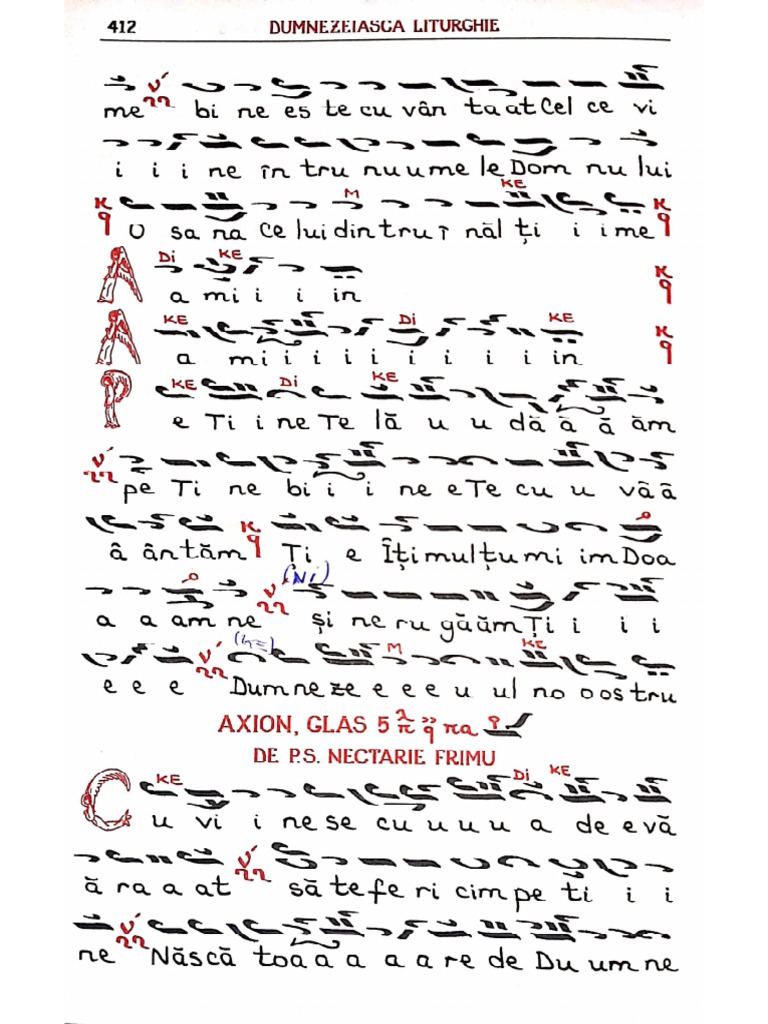 412 DUMNEZEIASCA LITURGHIE
me bi ne es te cu vân ta at Cel ce vi
i i i ne în tru nu u me le Dom nu lui
O sa na Ce lui din tru î năl ți i i me
M KE
DI KE
A a mi i i i in
KE DI KE
A a mi i i i i i i i i i in
KE DI KE
P e Ti i ne Te lă u u dă ă ă ăm
pe Ti ne bi i i i ne e Te cu u vâ â
â ântăm Ți e Îți mulțu mi im Doa
(Ni)
a a am ne și ne ru gă ăm Ți i i i
M KE
e e e Dum ne ze e e e u ul no o os tru
AXION, GLAS 5
DE P.S. NECTARIE FRIMU
KE DI KE
C u vi i ne se cu u u u a de e vă
ă ra a at să te fe ri cim pe ti i i
ne Năs că toa a a a a re de Du um ne